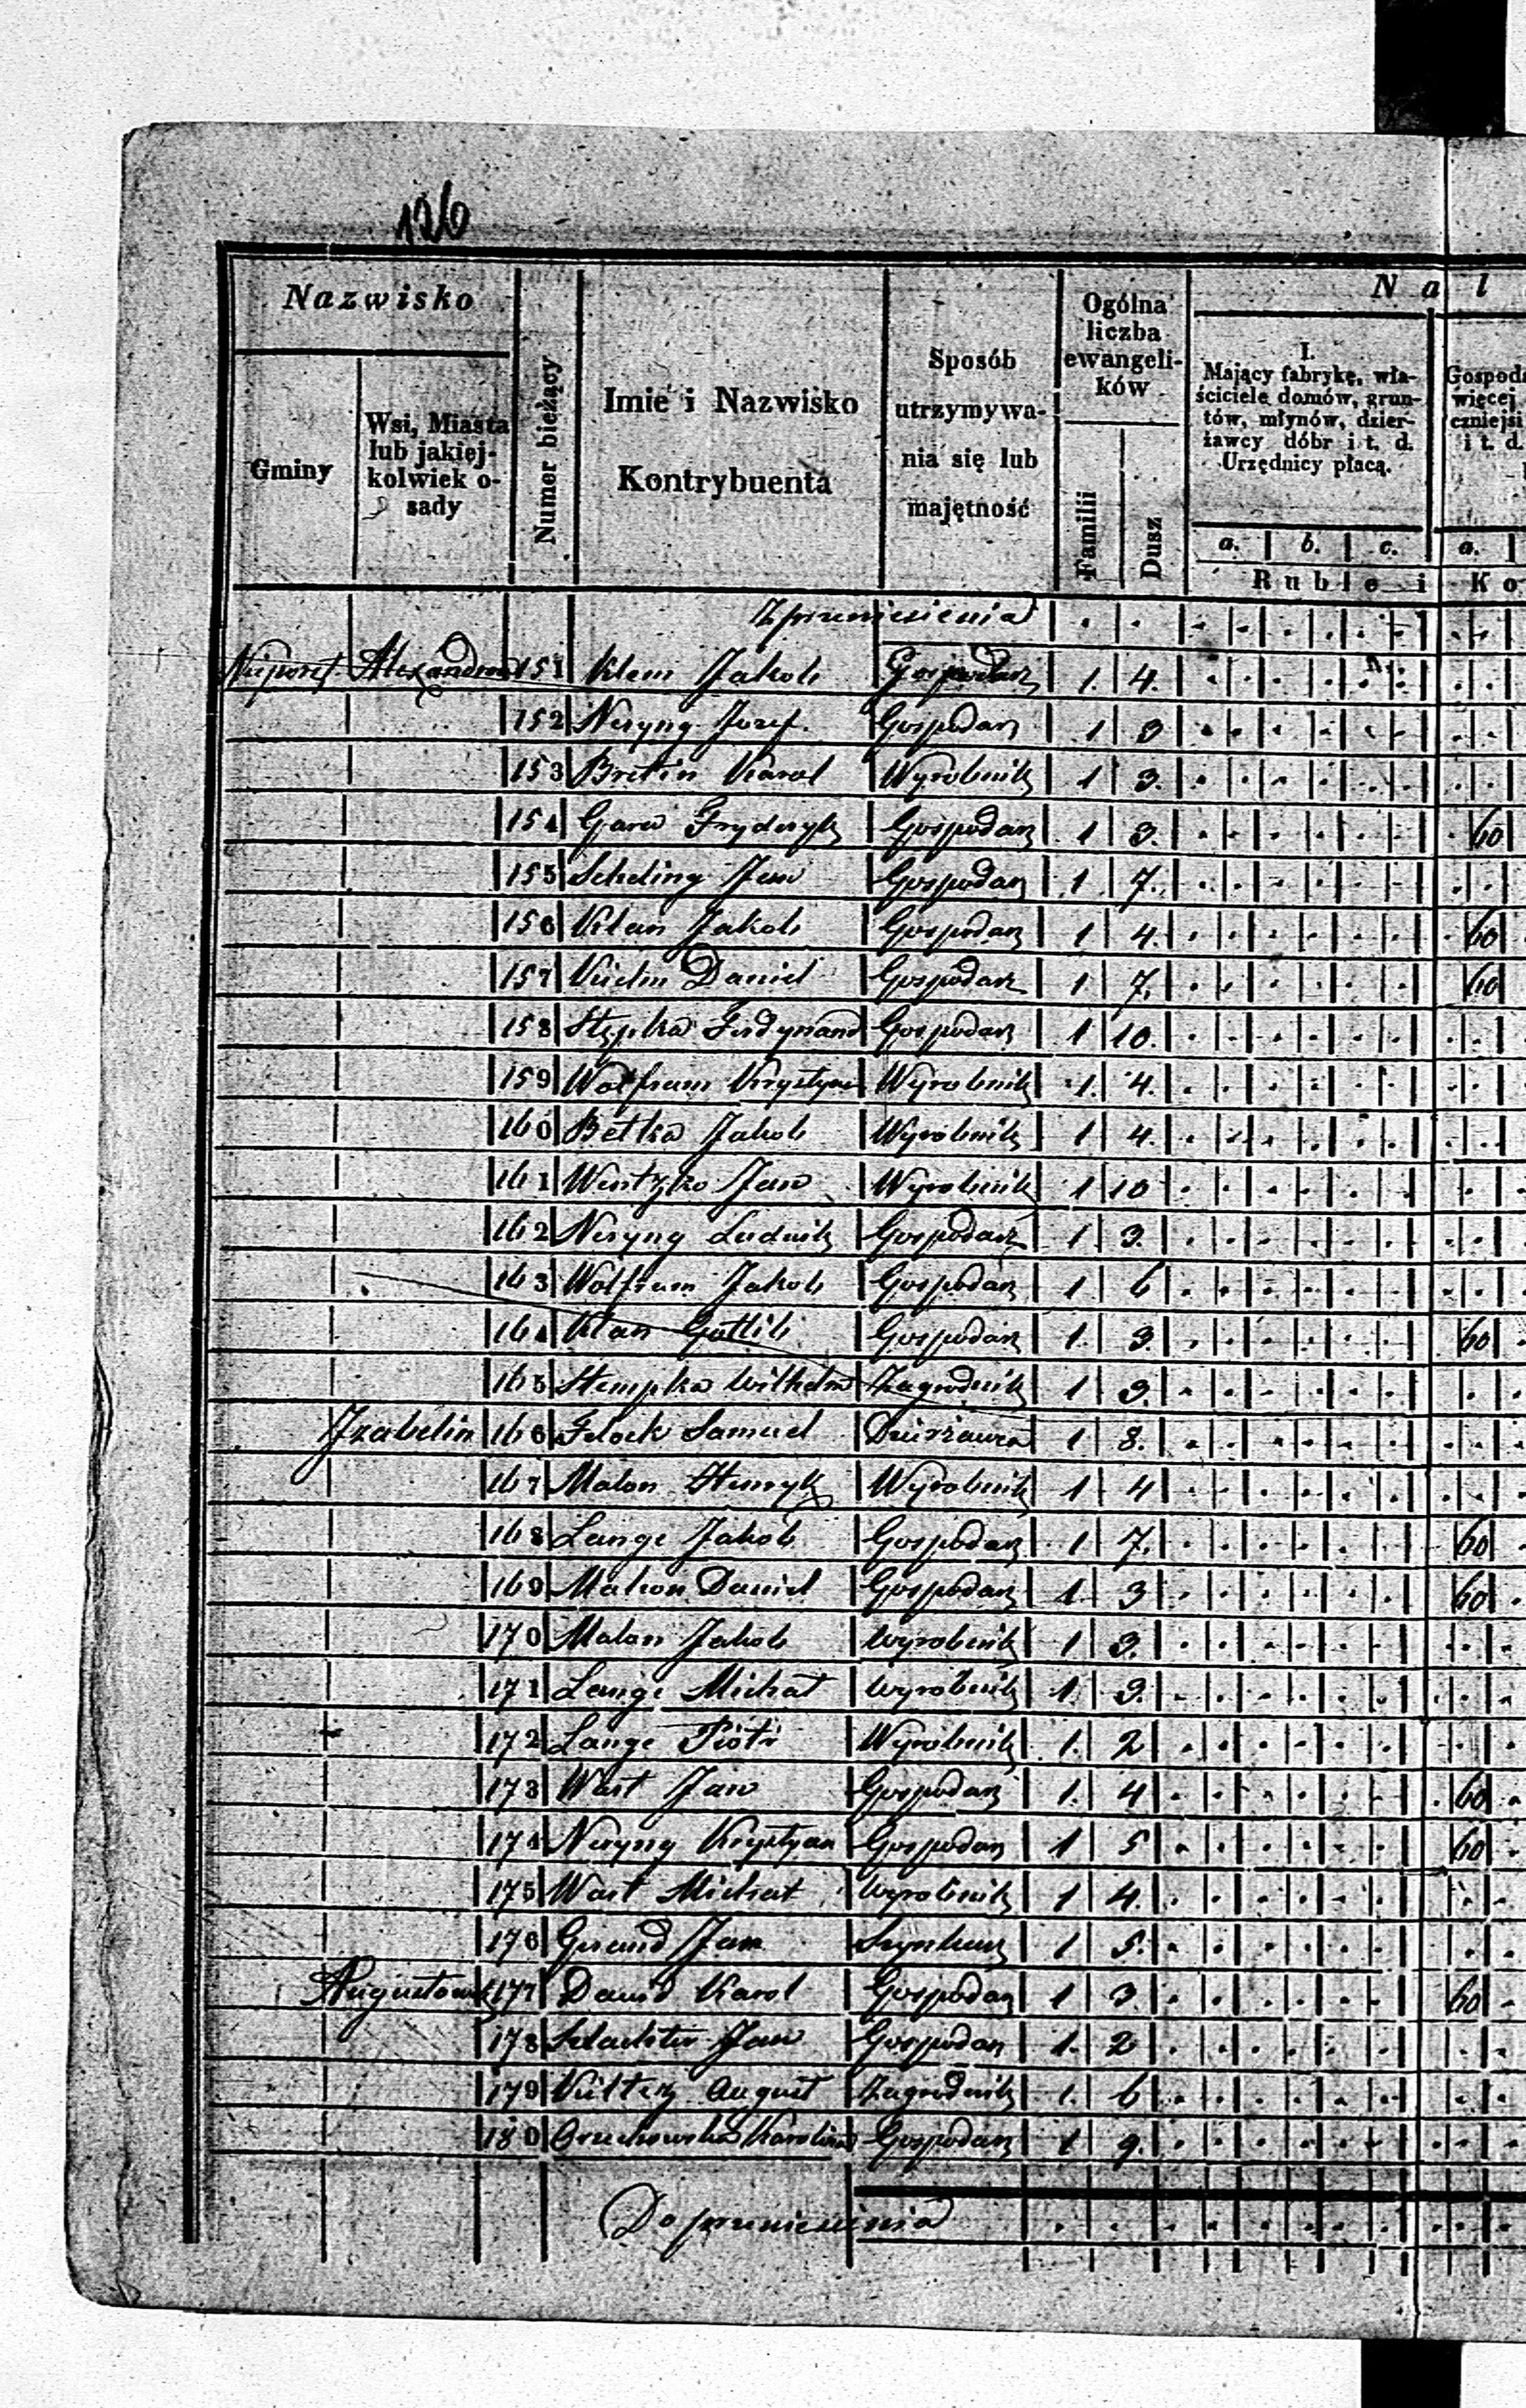 126
Nazwisko
Gminy
Wsi, Miasta lub jakiej- kolwiek o- sady
Numer bieżący
Imie i Nazwisko Kontrybuenta
Sposób utrzymywa- nia się lub majętność
Ogólna liczba ewangeli- ków
Familii
Dusz
N a l
I. Mający fabrykę, wła- ściciele domów, grun- tów, młynów, dzier- żawcy dóbr i t. d. Urzędnicy płacą.
a. b. c. a.
Ruble i Ko
Z przeniesienia
Nieporęt 151 Klem Jakob Gospodarz 1. 4.
152 Neryng Jozef Gospodarz 1 3
153 Bretin Karol Wyrobnik 1 3.
154 Fryderyk Gospodarz 1 3. 60
155 Scheling Jan Gospodarz 1 7.
156 Klan Jakob Gospodarz 1 4. 60
157 Daniel Gospodarz 1 7. 60
158 Stępka Ferdynand Gospodarz 1 10.
159 Wolfram Krystyan Wyrobnik 1. 4.
160 Betka Jakob Wyrobnik 1 4.
161 Jan Wyrobnik 1 10
162 Neryng Ludwik Gospodarz 1 3.
163 Wolfram Jakob Gospodarz 1 6
164 Klan Gottlib Gospodarz 1. 3. 60
165 Stempka Wilhelm Zagrodnik 1 3.
Izabelin 166 Samuel Dzierżawca 1 8.
167 Malon Henryk Wyrobnik 1 4
168 Lange Jakob Gospodarz 1 7. 60
169 Malon Daniel Gospodarz 1. 3 60
170 Malon Jakob Wyrobnik 1 3.
171 Lange Michał Wyrobnik 1 3.
172 Lange Piotr Wyrobnik 1. 2
173 Wast Jan Gospodarz 1. 4 60
174 Neryng Krystyan Gospodarz 1 5 60
175 Wast Michał Wyrobnik 1 4.
176 Jan Szynkarz 1 5.
177 Dawid Karol Gospodarz 1 3. 60
178 Jan Gospodarz 1. 2
179 August Zagrodnik 1. 6
180 Karolina Gospodarz 1 9.
Do przeniesienia